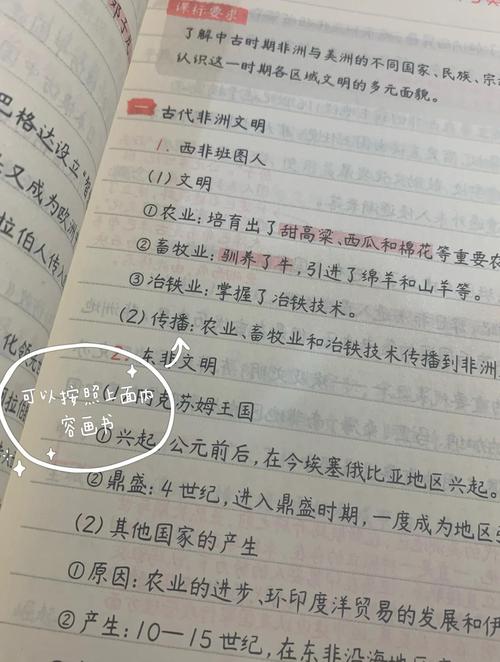 课标要求
了解中古时期非洲与美洲的不同国家、民族、宗
认识这一时期各区域文明的多元面貌。
一 古代非洲文明
1. 西非班图人
(1) 文明
①农业: 培育出了甜高粱、西瓜和棉花等重要农
②畜牧业: 驯养了牛, 引进了绵羊和山羊等。
③冶铁业: 掌握了冶铁技术。
(2) 传播: 农业、畜牧业和冶铁技术传播到非洲
2. 东非文明
克苏姆王国
①兴起: 公元前后, 在今埃塞俄比亚地区兴起。
②鼎盛: 4世纪, 进入鼎盛时期, 一度成为地区
(2) 其他国家的产生
①原因: 农业的进步、环印度洋贸易的发展和伊
②产生: 10—15世纪, 在东非沿海地
可以按照上面内
容画书
巴格达设立
又成为欧洲
拉伯人传入
化领